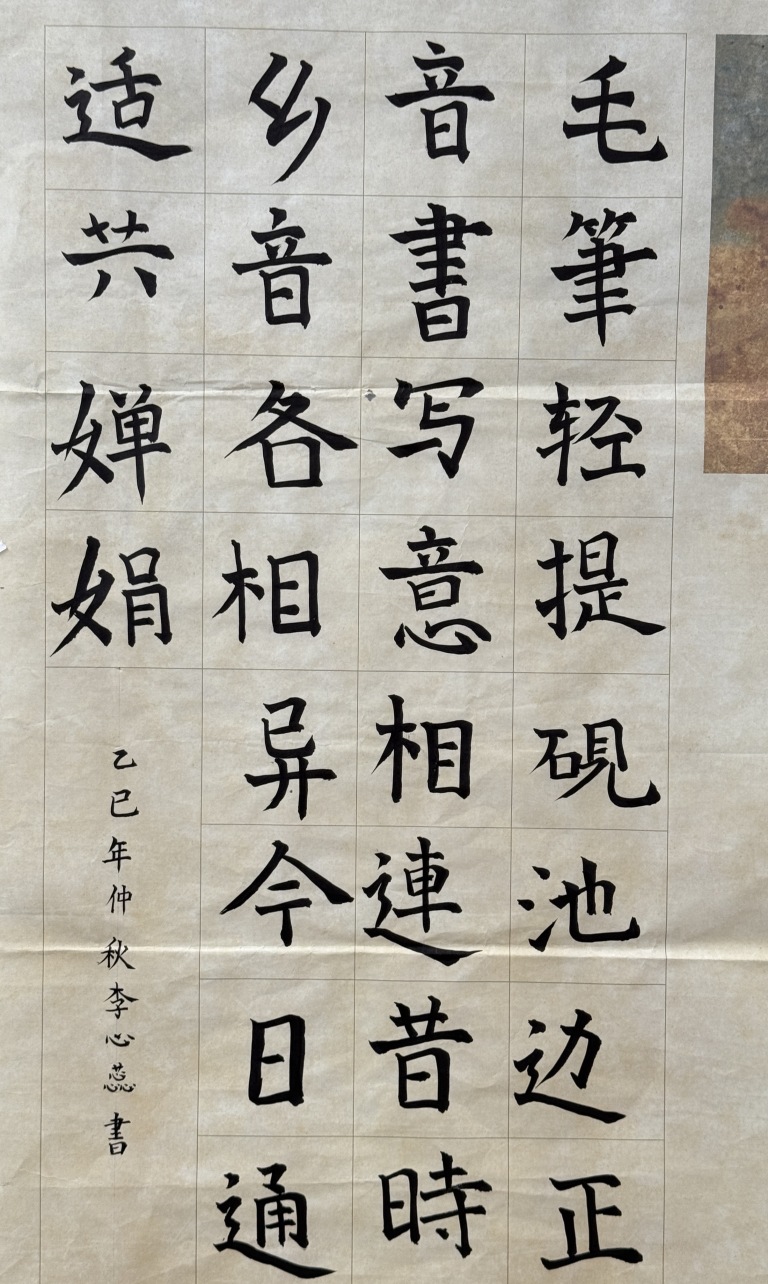 毛筆轻提砚池边正
音書写意相連昔時
乡音各相异今日通
适共婵娟
乙巳年仲秋李心蕊書